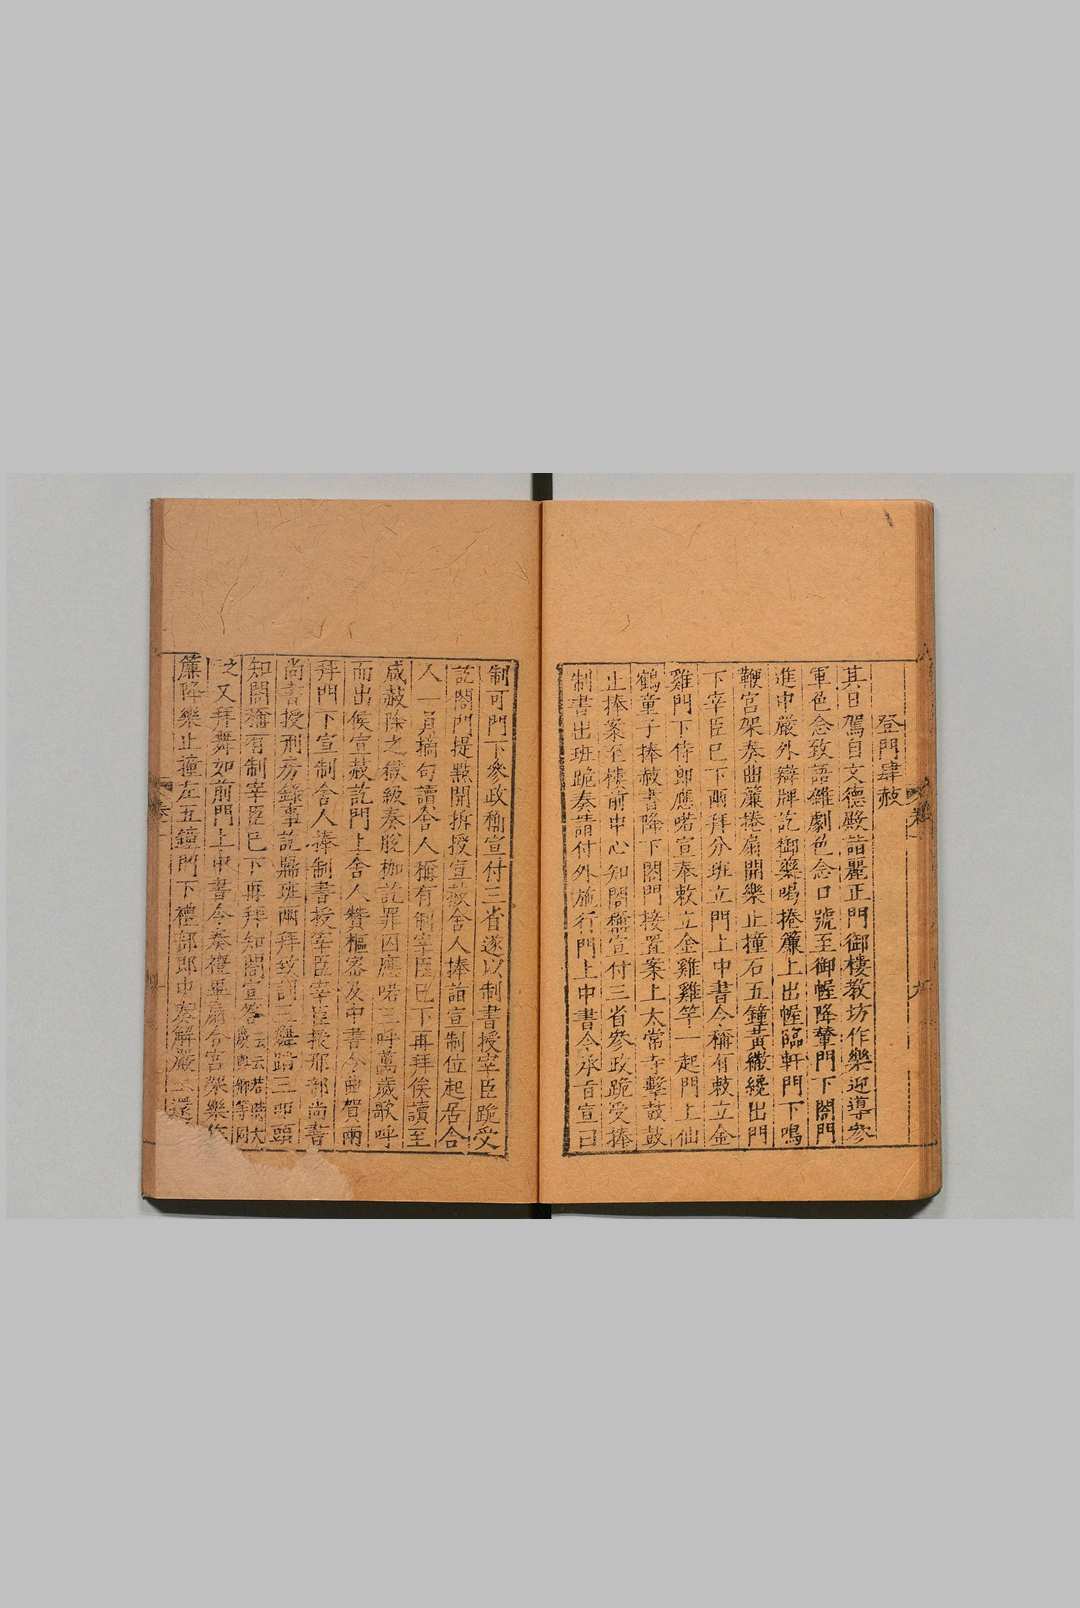 登門肆赦
其日駕自文德殿詣麗正門御樓教坊作樂迎導參
軍色念致語雜劇色念口號至御幄降輦門下閤門
進中嚴外辦牌訖御藥喝捲簾上出幄臨軒門下鳴
鞭宮架奏曲簾捲扇開樂止撞右五鐘黃繖纔出門
下宰臣已下兩拜分班立門上中書令稱有敕立金
雞門下侍郎應喏宣奉敕立金雞雞竿一起門上仙
鶴童子捧赦書降下閤門接置案上太常寺擊鼓鼓
止捧案至樓前中心知閤稱宣付三省參政跪受捧
制書出班跪奏請付外施行門上中書令承旨宣曰
制可門下參政稱宣付三省遂以制書授宰臣跪受
訖閤門提點開拆授宣赦舍人捧詣宣制位起居舍
人一員摘句讀舍人稱有制宰臣已下再拜俟讀至
咸赦除之獄級奏脫枷訖罪囚應喏三呼萬歲歌呼
而出候宣赦訖門上舍人贊樞密及中書令曲賀兩
拜門下宣制舍人捧制書授宰臣宰臣授刑部尚書
尚書授刑房錄事訖歸班兩拜致詞三舞蹈三叩頭
知閤稱有制宰臣已下再拜知閤宣答云云若時大慶與卿等同
之又拜舞如前門上中書令奏禮畢扇合宮架樂作
簾降樂止撞左五鐘門下禮部郎中奏解嚴上還
卷一